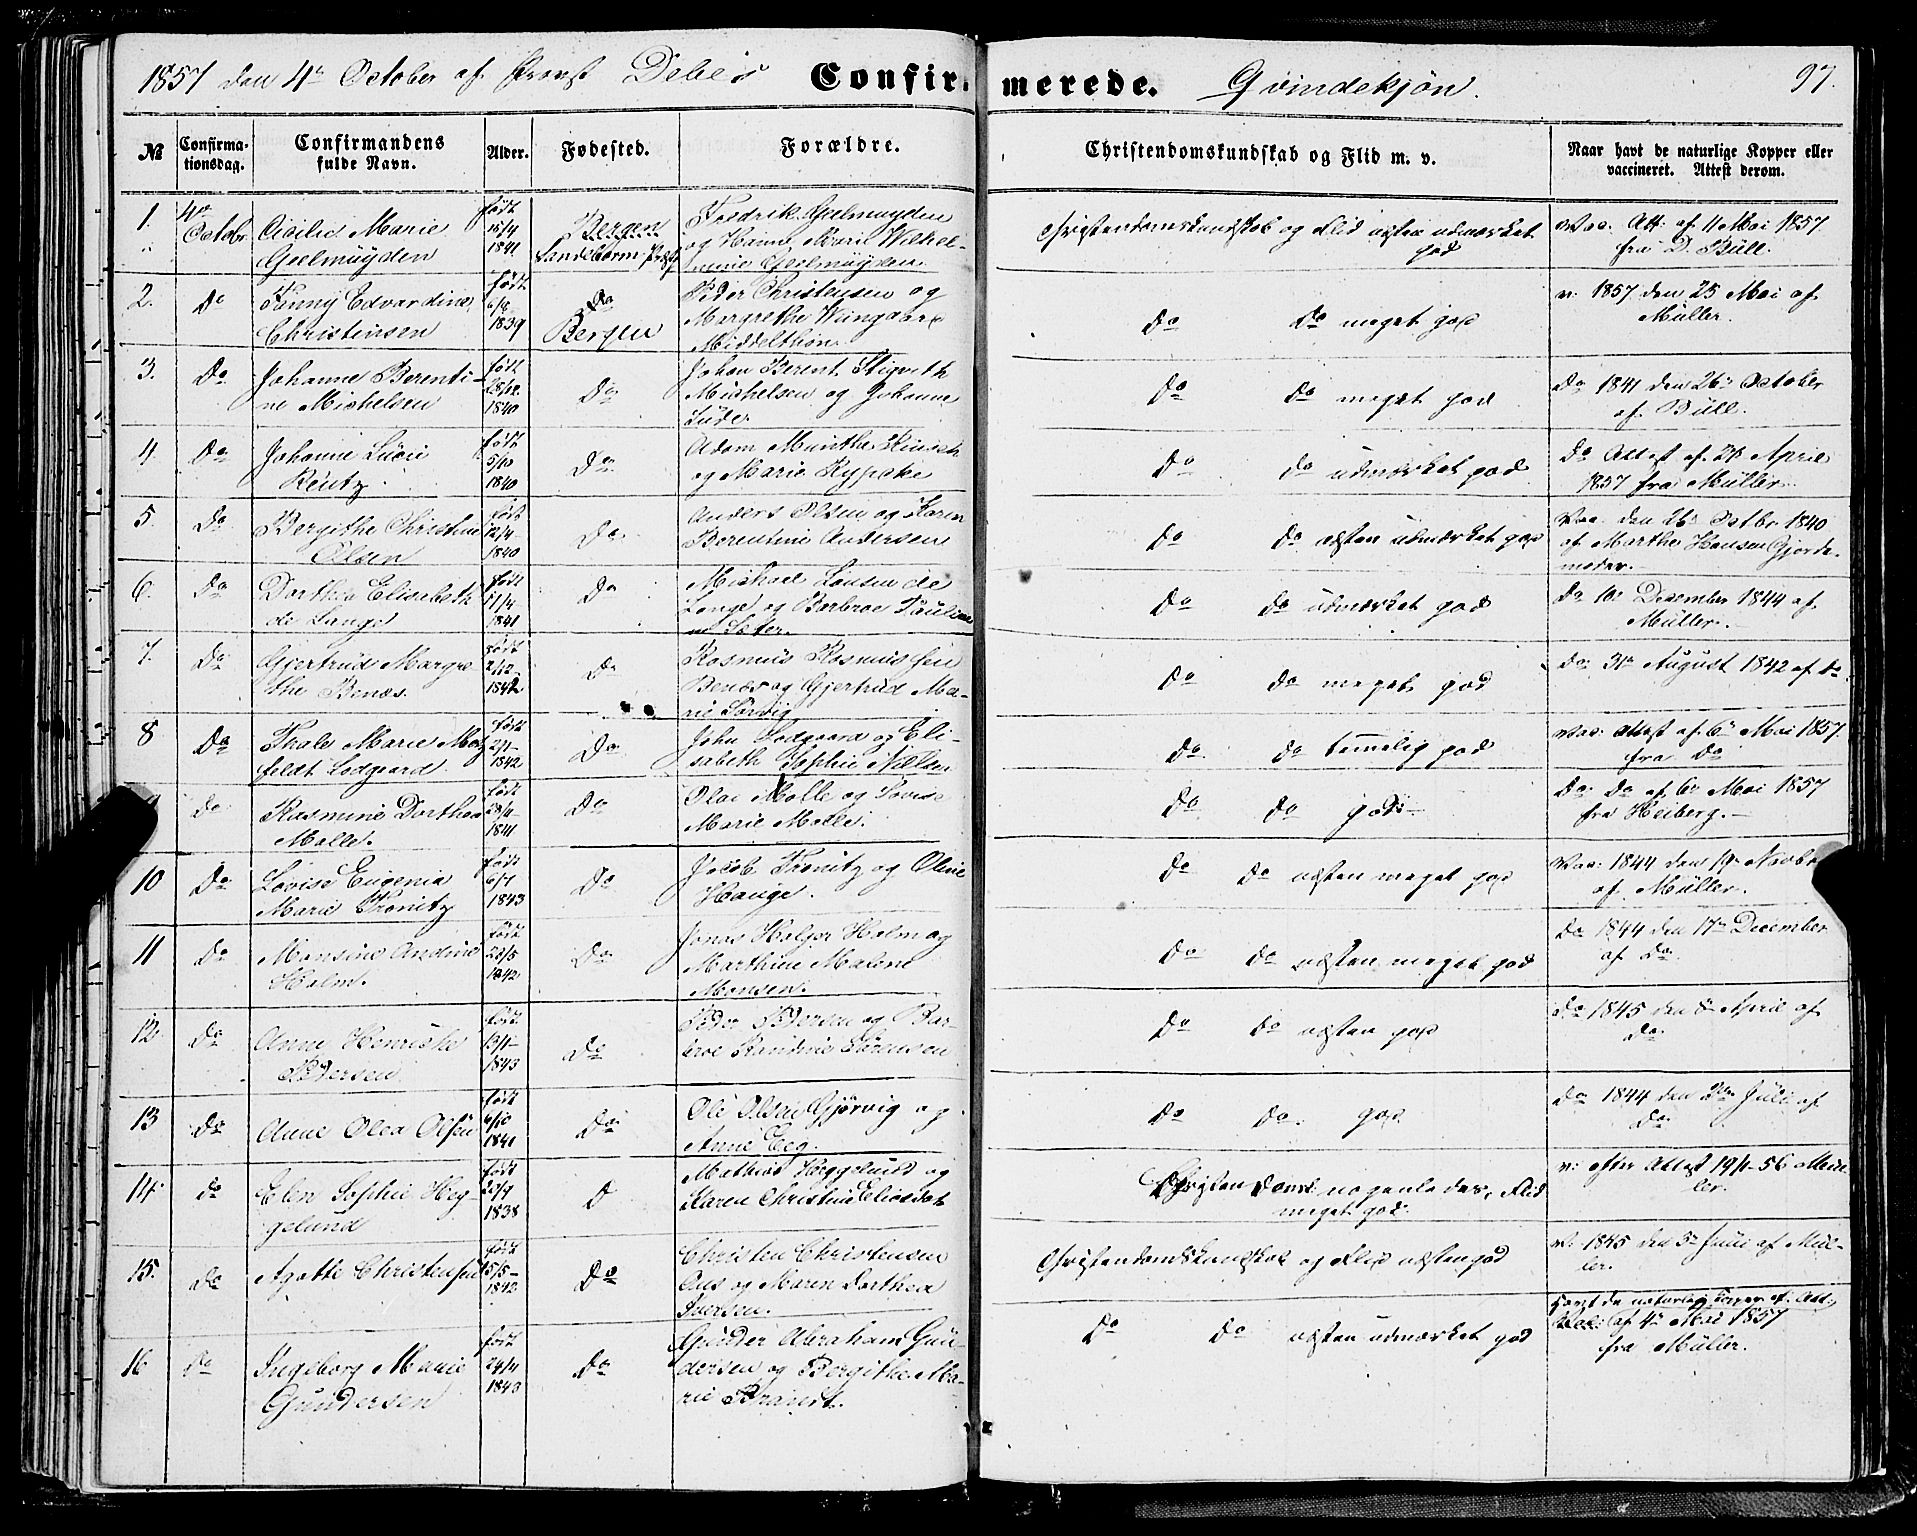 1857 den 4de October af Provst Debes Confir- merede. Qvindekjøn. 97.
No Confirma-tionsdag. Confirmandens fulde Navn. Alder. Fødested. Forældre. Christendomskundskab og Flid m. v. Naar havt de naturlige Kopper eller vaccineret. Attest derom.
1. 4de Octobr
Cicilie Marie
Geelmuyden
født
15/4
1841
Bergen
Fredrik Geelmuyden
og Hanne Marie Wilhel-
mine Geelmuyden.
Christendomskundskab og Flid næsten udmærket
god
Vac. Att. af 11 Mai 1857
fra D. Büll.
2. Do
Fanny Edvardine
Christensen
født
6/8
1839
Do
Bergen
Peder Christensen og
Margrethe
Middelthon.
Do Do meget god
v. 1857 den 25 Mai af
Müller.
3. Do
Johanne Berenti-
ne Michelsen
født
28/12
1840
Do
Johan Berent
Michelsen og Johanne
Lüder.
Do Do meget god
Do 1841 den 26de October
af Büll.
4. Do
Johanne
Reutz.
født
5/10
1840
Do
Adam Munthe
og Marie
Do Do udmærket god
Do Attest af 21 April
1857 fra Müller.
5. Do
Bergithe Christine
Olsen
født
12/4
1840
Do
Anders Olsen og Karen
Berentine Andersen
Do Do næsten udmærket god
Vac. den 26de Octbr 1840
af Marthe Hansen Gjorde-
moder.
6. Do
Dorthea Elisabeth
de Lange
født
11/4
1841
Do
Michael Lausen de
Lange og Barbroe Pauline
Do Do udmærket god
Do 10de December 1844 af
Müller.
7. Do
Gjertrud Margre-
the Benæs.
født
2/12
1842
Do
Rasmus Rasmussen
Benæs og Gjertrud Ma-
rie Sørvig
Do Do meget god
Do 31te August 1842 af Do
8 Do
Thale Marie Motz
feldt Lodgaard.
født
2/1
1842
Do
John Lodgaard og Eli-
sabeth Sophie Nilsen
Do Do temelig god
Vac: Attest af 6te Mai 1857.
fra Do
Do
Rasmine Dorthea
Molle.
født
1841
Do
Olai Molle og Lovise
Marie Molle.
Do Do god
Do Do af 6te Mai 1857
fra Heiberg.
10 Do
Lovise Eugenia
Marie Fronitz
født
6/7
1843
Do
Jacob Fronitz og Oline
Hauge.
Do Do næsten meget god
Vac: 1844 den 19de Novbr
af Müller.
11 Do
Monsine Andrine
Holm.
født
23/5
1842
Do
Jonas Holger Holm og
Marthine Malene
Monsen.
Do Do næsten meget god
Do 1844 den 17de December
af Do
12. Do
Anne Henriche
Pedersen
født
13/1
1843
Do
Peder Pedersen og Bar-
broe Randine Sørensen
Do Do næsten god
Do 1845 den 8de April af
Do
13 Do
Anne Olea Olsen
født
6/10
1841
Do
Ole Olsen Gjørvig og
Anne Eeg.
Do Do god
Do 1844 den 2den Juli af
Do
14. Do
Elen Sophie Heg-
gelund
født
23/9
1838
D
Mathias Heggelund og
Karen Christine
Christendomsk nogenledes, Flid
meget god.
v: efter Attest 19/1-56 Mül-
ler.
15. Do
Agathe Christensen
født
15/5
1842
Do
Christen Christensen
Aas og Maren Dorthea
Iversen.
Christendomskundskab og Flid næsten god
v. 1845 den 5te Juli af Mül-
ler.
16 Do
Ingeborg Marie
Gundersen
født
24/4
1843
Do
Gunder Abraham Gun-
dersen og Bergithe Ma-
rie Brandt.
Do Do næsten udmærket god
Havt de naturlig kopper af. Att.
af 4de Mai 1857
fra Müller.